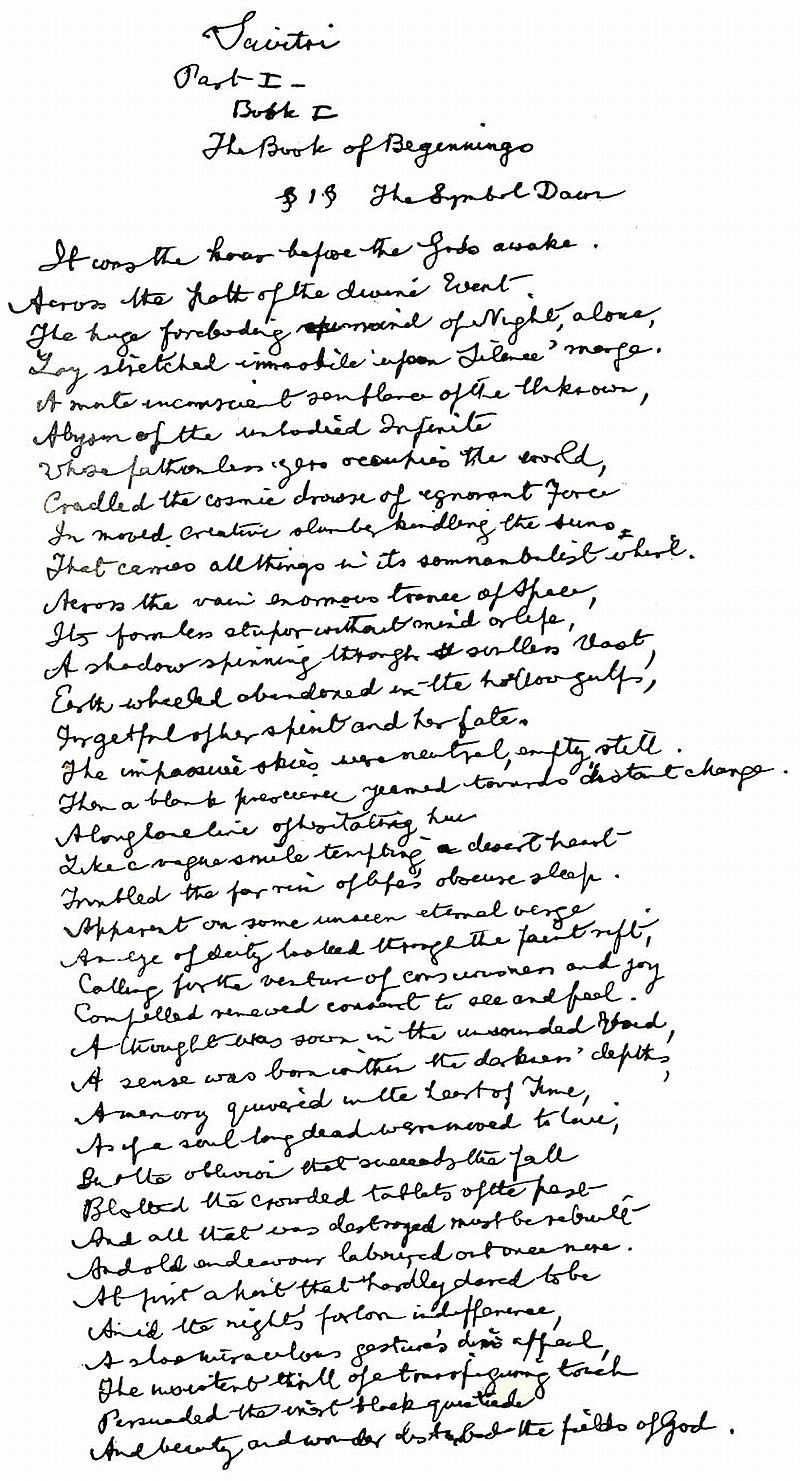 Savitri
Part I -
Book I
The Book of Beginnings
§ 1 § The Symbol Dawn
It was the hour before the Gods awake.
Across the path of the divine Event
The huge foreboding mind of Night, alone,
Lay stretched immobile upon Silence' marge.
A mute inconscient semblance of the Unknown,
Abysm of the unbodied Infinite
Whose fathomless zero occupies the world,
Cradled the cosmic drowse of ignorant Force
In moved creative slumber kindling the suns
That carries all things in its somnambulist whirl.
Across the vain enormous trance of Space,
Its formless stupor without mind or life,
A shadow spinning through soulless Vast,
Earth wheeled abandoned in the hollow gulfs,
Forgetful of her spirit and her fate.
The impassive skies were neutral, empty, still.
Then a blank prescience yearned towards distant change.
A long lone line of hesitating hue
Like a vague smile tempting a desert heart
Troubled the far rim of life's obscure sleep.
Apparent on some unseen eternal verge
An eye of deity looked through the faint rift,
Calling for the venture of consciousness and joy
Compelled renewed consent to see and feel.
A thought was sown in the unsounded Void,
A sense was born within the darkness' depths,
A memory quivered in the heart of Time,
As if a soul long dead were moved to live;
But the oblivion that succeeds the fall
Blotted the crowded tablets of the past
And all that was destroyed must be rebuilt
And old endeavour laboured out once more.
At first a hint that hardly dared to be
Amid the night's forlorn indifference,
A slow miraculous gesture's dim appeal,
The insistent thrill of a transfiguring touch
Persuaded the inert black quietude
And beauty and wonder disturbed the fields of God.